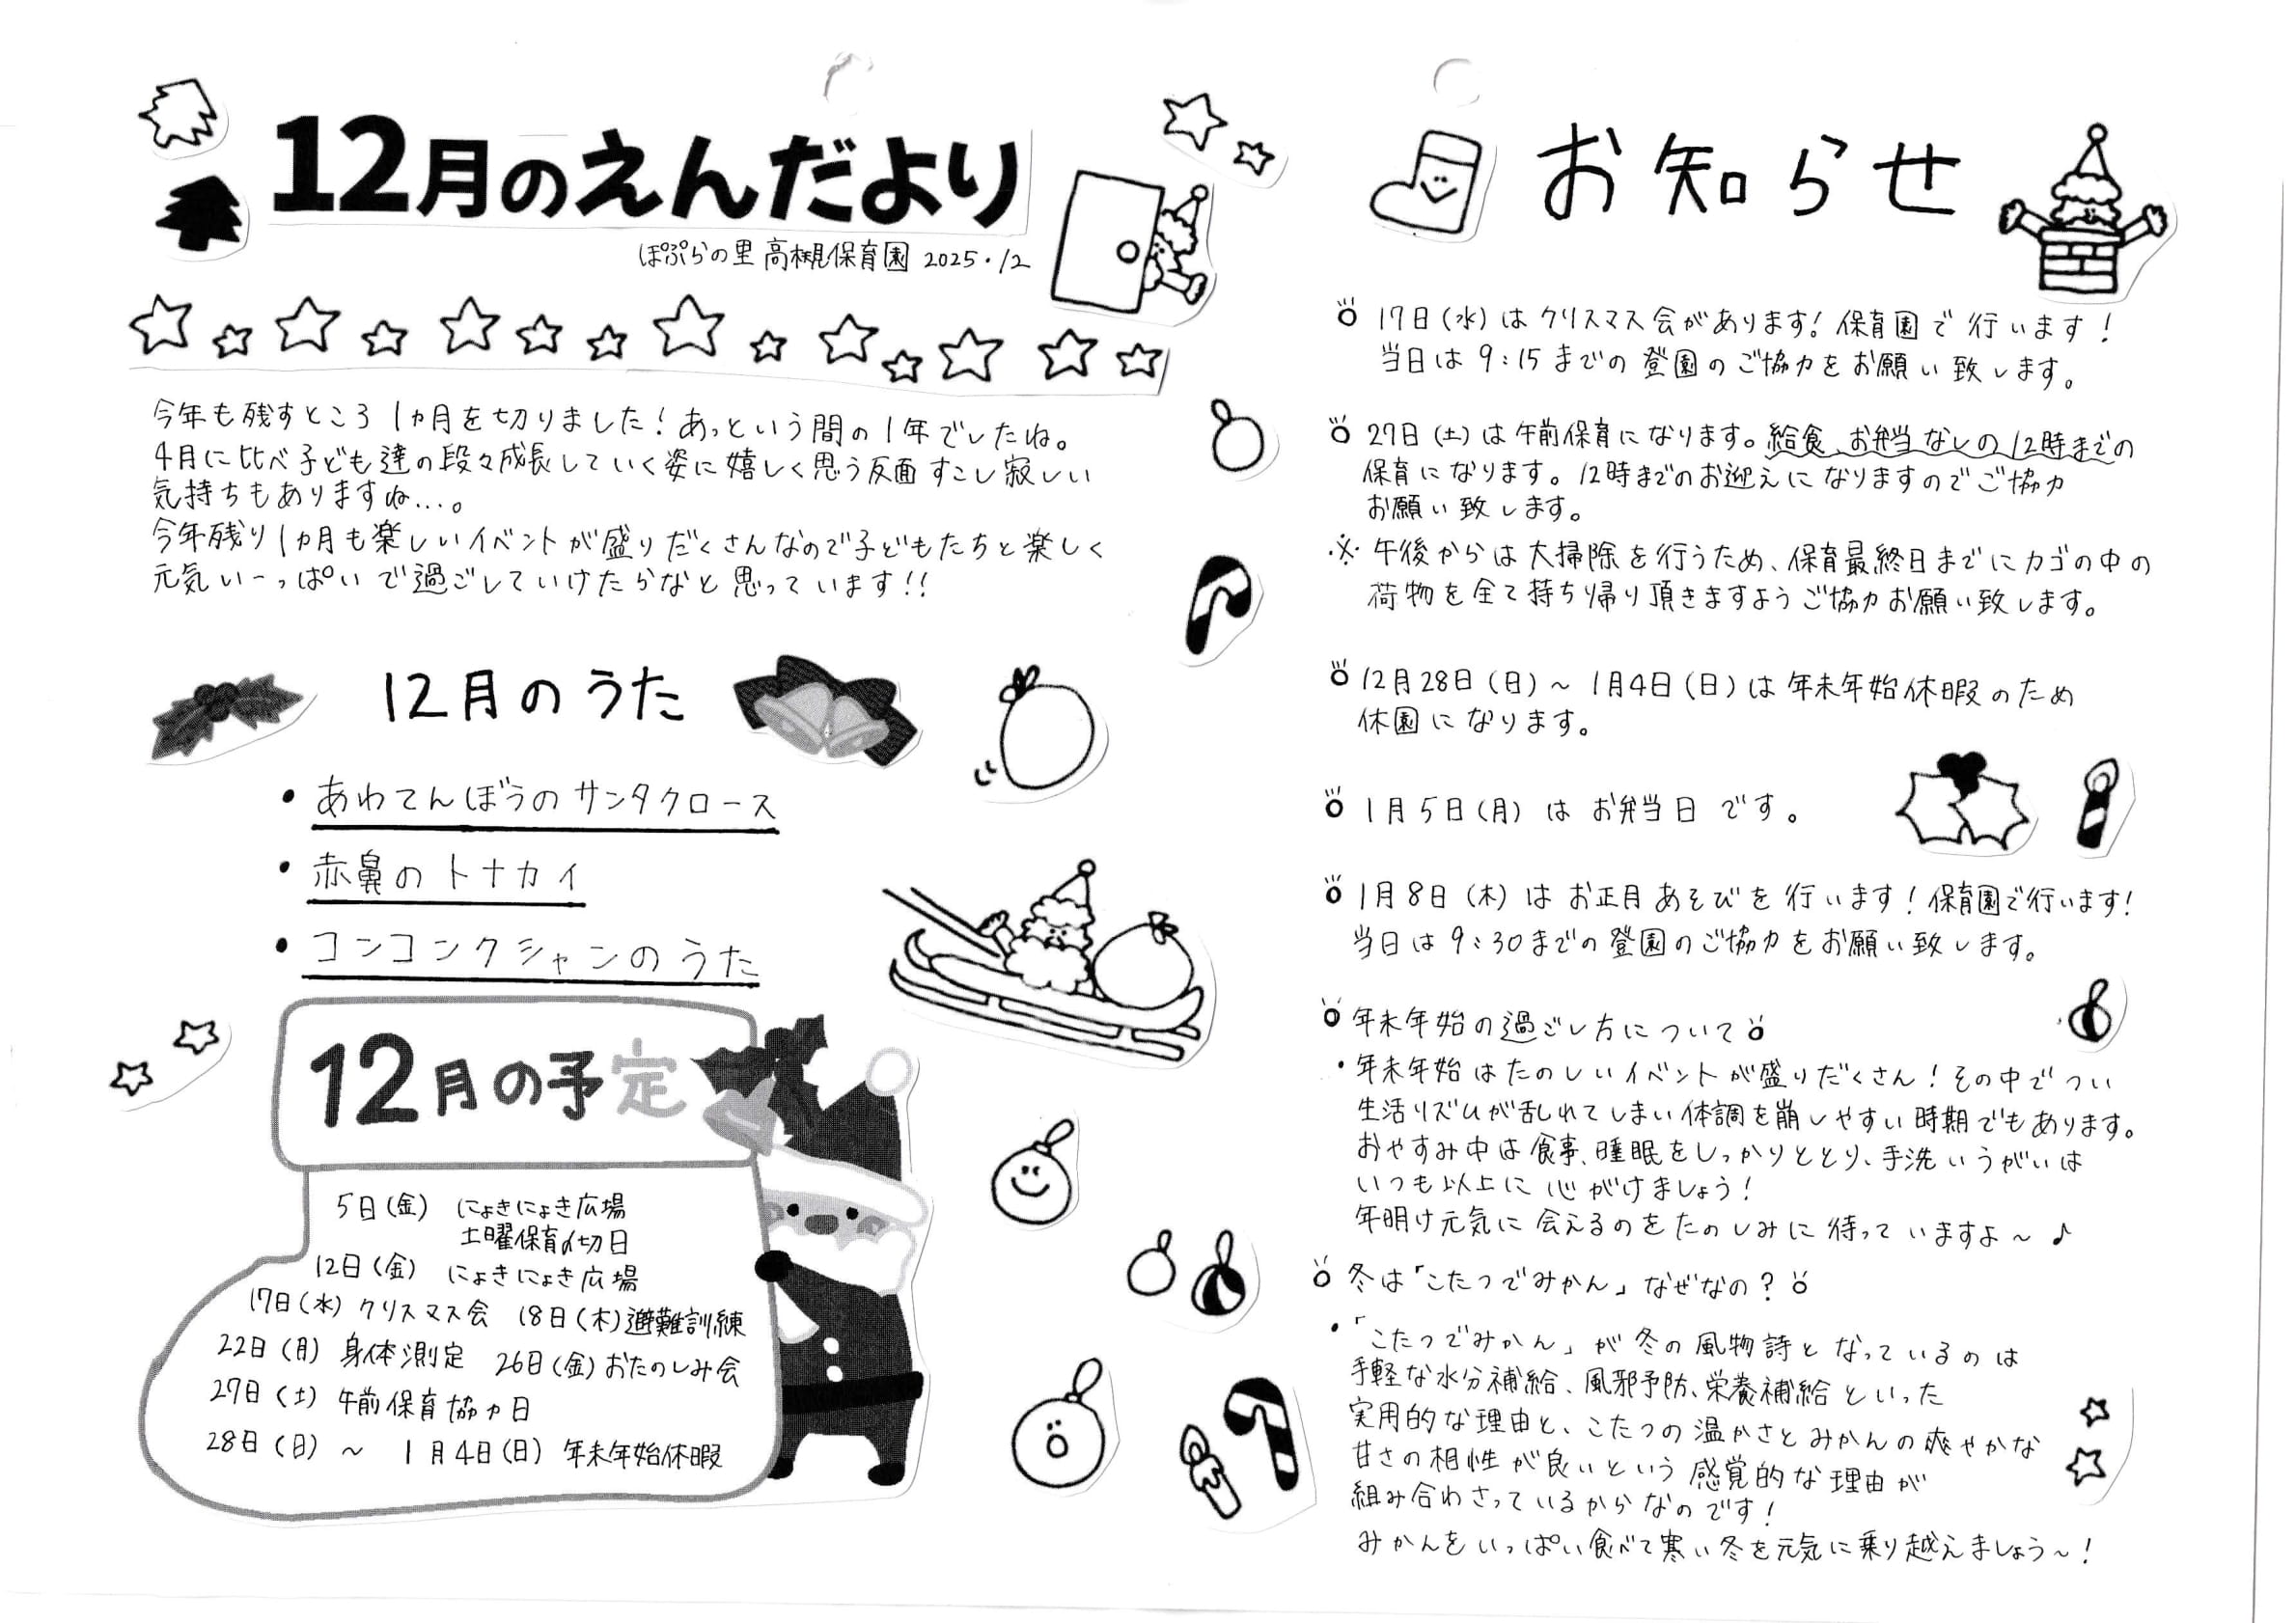 12月のえんだより
ぽぷらの里 高槻保育園 2025・12
今年も残すところ 1ヵ月を切りました！あっという間の1年でしたね。
4月に比べ子ども達の段々成長していく姿に嬉しく思う反面すこし寂しい
気持ちもありますね…。
今年残り1ヵ月も楽しいイベントが盛りだくさんなので子どもたちと楽しく
元気いーっぱいで過ごしていけたらなと思っています!!
12月のうた
・あわてんぼうのサンタクロース
・赤鼻のトナカイ
・コンコンクシャンのうた
12月の予定
5日(金) にょきにょき広場
土曜保育〆切日
12日(金) にょきにょき広場
17日(水) クリスマス会 18日(木)避難訓練
22日(月) 身体測定 26日(金)おたのしみ会
27日(土) 午前保育協力日
28日(日) ～ 1月4日(日) 年末年始休暇
お知らせ
17日(水)はクリスマス会があります！保育園で行います！
当日は9:15までの登園のご協力をお願い致します。
27日(土)は午前保育になります。給食、お弁当なしの12時までの
保育になります。12時までのお迎えになりますのでご協力
お願い致します。
※午後からは大掃除を行うため、保育最終日までにカゴの中の
荷物を全て持ち帰り頂きますようご協力お願い致します。
12月28日(日)～1月4日(日)は年末年始休暇のため
休園になります。
1月5日(月)はお弁当日です。
1月8日(木)はお正月あそびを行います！保育園で行います！
当日は9:30までの登園のご協力をお願い致します。
年末年始の過ごし方について
・年末年始はたのしいイベントが盛りだくさん！その中でつい
生活リズムが乱れてしまい体調を崩しやすい時期でもあります。
おやすみ中は食事、睡眠をしっかりととり、手洗いうがいは
いつも以上に心がけましょう！
年明け元気に会えるのをたのしみに待っていますよ～♪
冬は「こたつでみかん」なぜなの？
・「こたつでみかん」が冬の風物詩となっているのは
手軽な水分補給、風邪予防、栄養補給といった
実用的な理由と、こたつの温かさとみかんの爽やかな
甘さの相性が良いという感覚的な理由が
組み合わさっているからなのです！
みかんをいっぱい食べて寒い冬を元気に乗り越えましょう～！